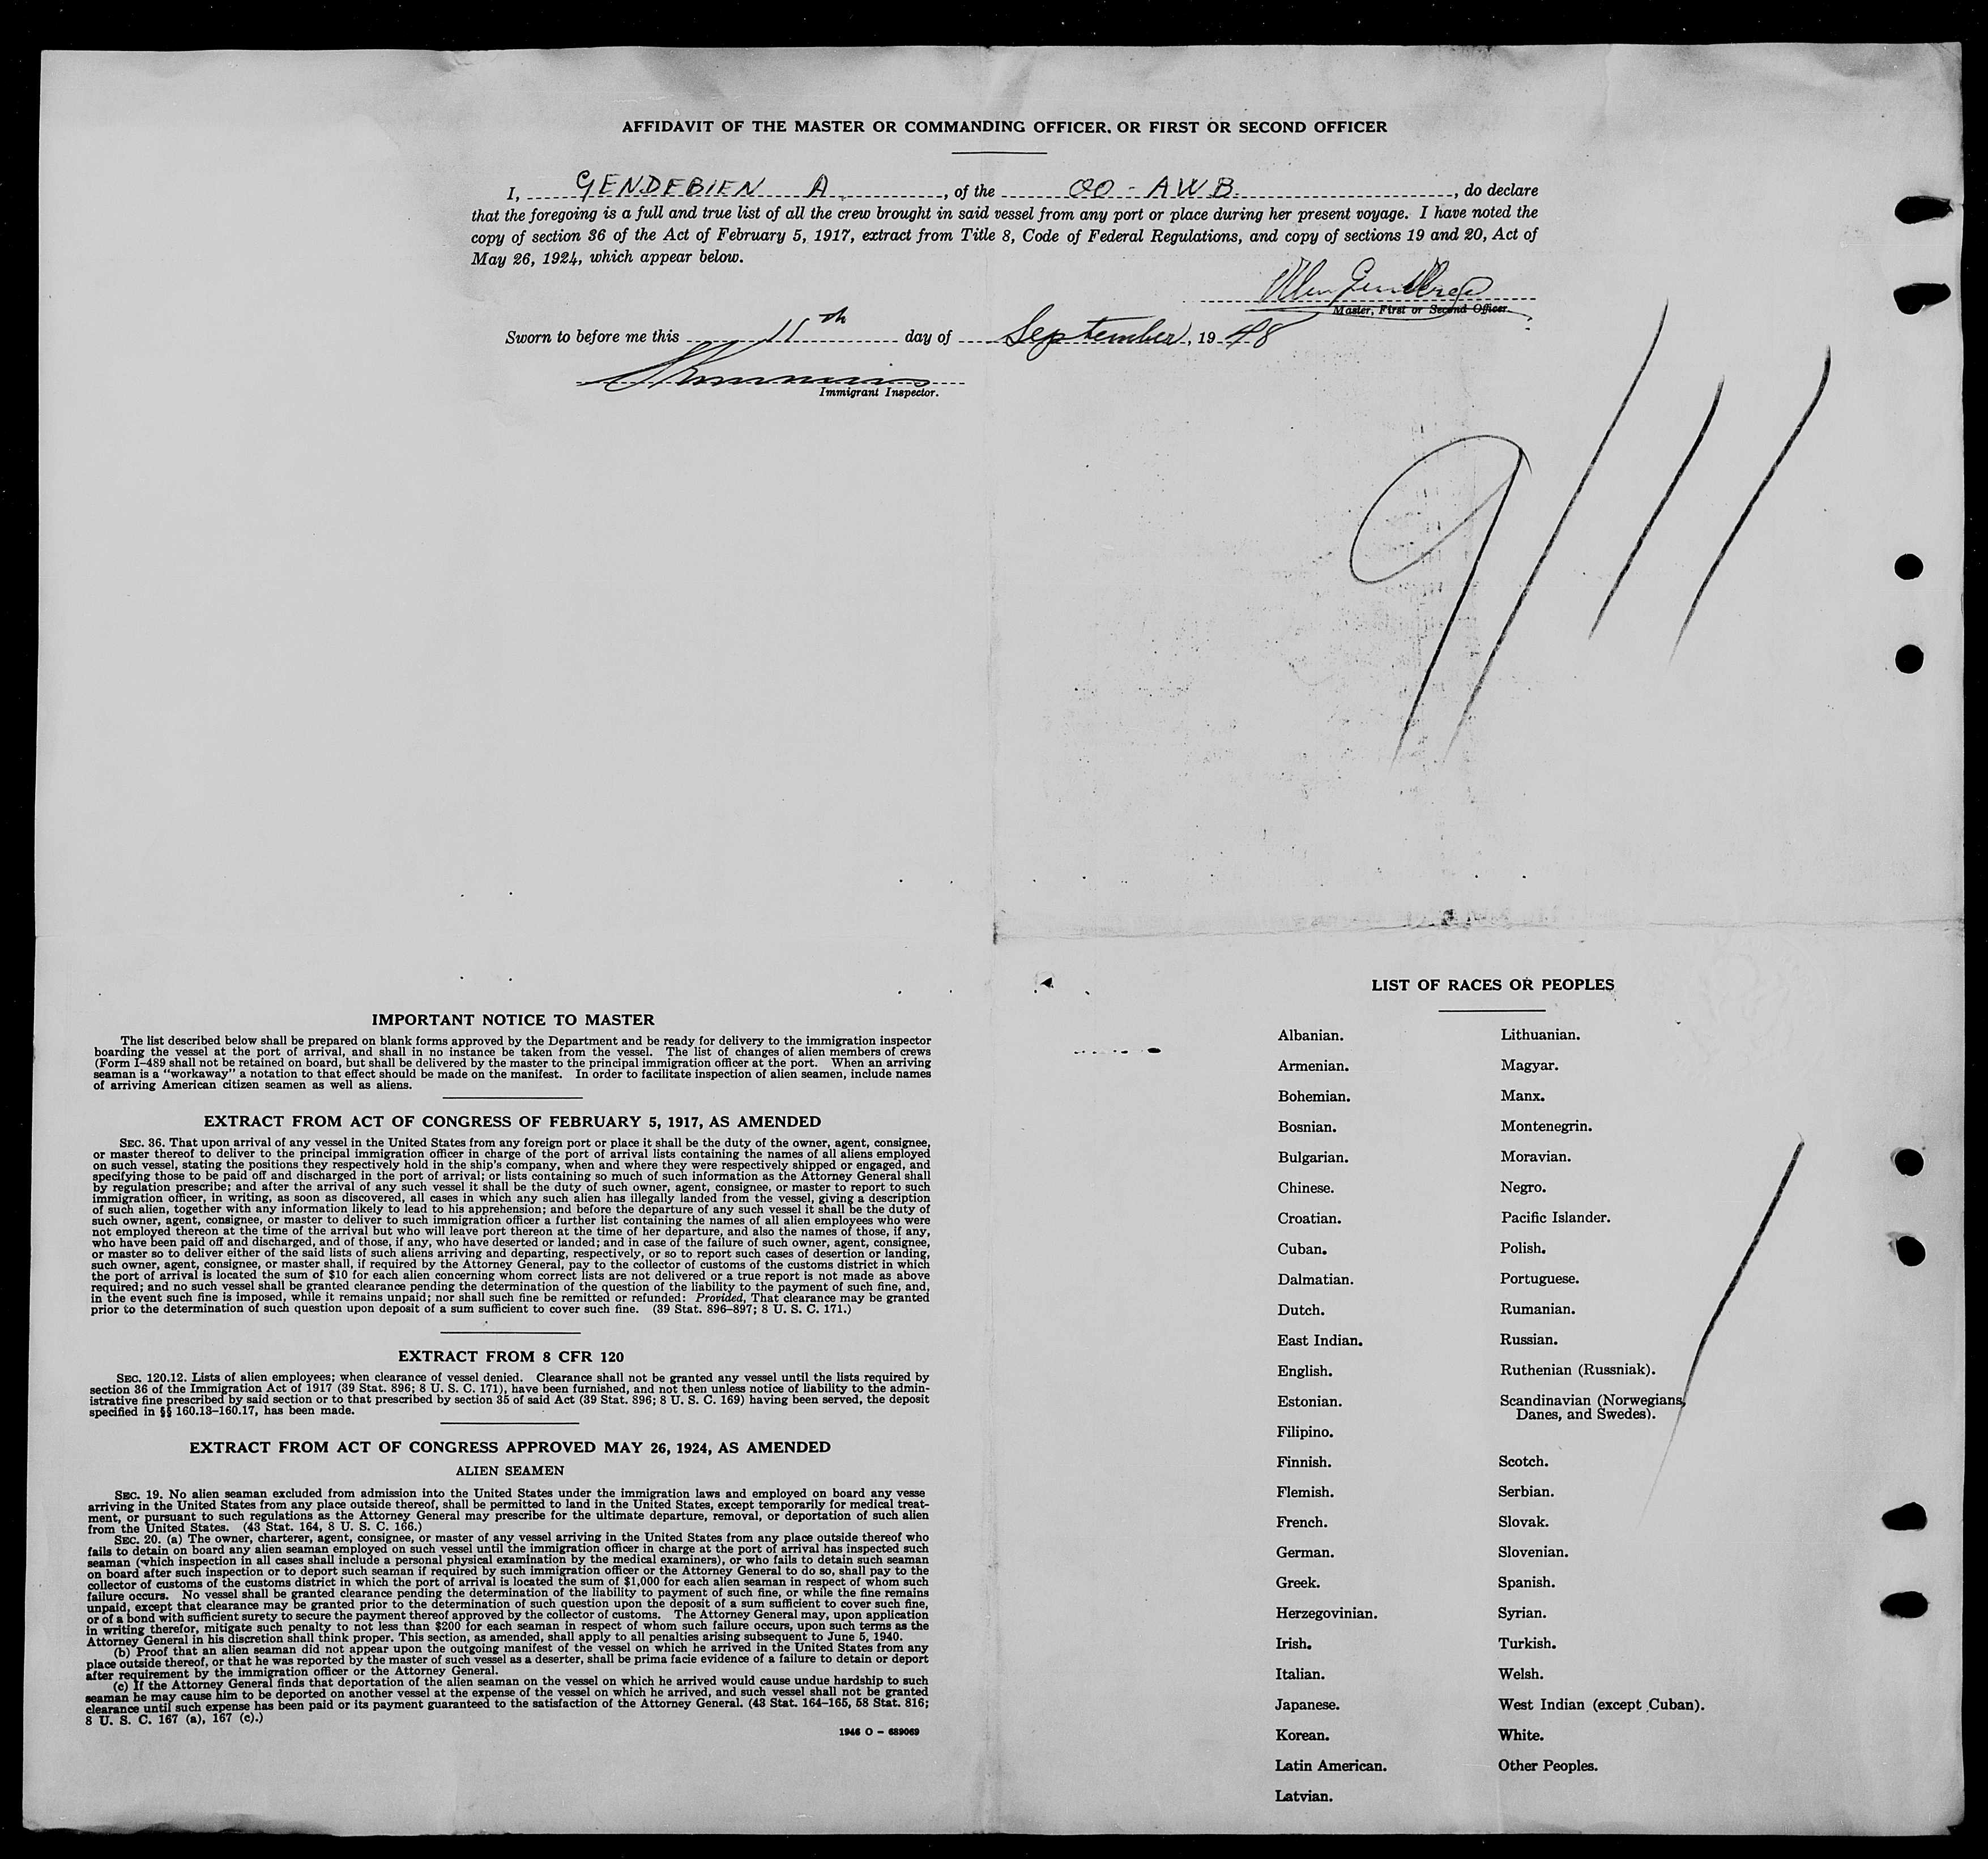 AFFIDAVIT OF THE MASTER OR COMMANDING OFFICER, OR FIRST OR SECOND OFFICER
I, GENDEBIEN A, of the OO-AWB., do declare
that the foregoing is a full and true list of all the crew brought in said vessel from any port or place during her present voyage. I have noted the
copy of section 36 of the Act of February 5, 1917, extract from Title 8, Code of Federal Regulations, and copy of sections 19 and 20, Act of
May 26, 1924, which appear below.
Master, First or Second Officer.
Sworn to before me this 11th day of September, 1948
Immigrant Inspector.
9/11
IMPORTANT NOTICE TO MASTER
The list described below shall be prepared on blank forms approved by the Department and be ready for delivery to the immigration inspector
boarding the vessel at the port of arrival, and shall in no instance be taken from the vessel. The list of changes of alien members of crews
(Form I-489 shall not be retained on board, but shall be delivered by the master to the principal immigration officer at the port. When an arriving
seaman is a "workaway" a notation to that effect should be made on the manifest. In order to facilitate inspection of alien seamen, include names
of arriving American citizen seamen as well as aliens.
EXTRACT FROM ACT OF CONGRESS OF FEBRUARY 5, 1917, AS AMENDED
SEC. 36. That upon arrival of any vessel in the United States from any foreign port or place it shall be the duty of the owner, agent, consignee,
or master thereof to deliver to the principal immigration officer in charge of the port of arrival lists containing the names of all aliens employed
on such vessel, stating the positions they respectively hold in the ship's company, when and where they were respectively shipped or engaged, and
specifying those to be paid off and discharged in the port of arrival; or lists containing so much of such information as the Attorney General shall
by regulation prescribe; and after the arrival of any such vessel it shall be the duty of such owner, agent, consignee, or master to report to such
immigration officer, in writing, as soon as discovered, all cases in which any such alien has illegally landed from the vessel, giving a description
of such alien, together with any information likely to lead to his apprehension; and before the departure of any such vessel it shall be the duty of
such owner, agent, consignee, or master to deliver to such immigration officer a further list containing the names of all alien employees who were
not employed thereon at the time of the arrival but who will leave port thereon at the time of her departure, and also the names of those, if any,
who have been paid off and discharged, and of those, if any, who have deserted or landed; and in case of the failure of such owner, agent, consignee,
or master so to deliver either of the said lists of such aliens arriving and departing, respectively, or so to report such cases of desertion or landing,
such owner, agent, consignee, or master shall, if required by the Attorney General, pay to the collector of customs of the customs district in which
the port of arrival is located the sum of $10 for each alien concerning whom correct lists are not delivered or a true report is not made as above
required; and no such vessel shall be granted clearance pending the determination of the question of the liability to the payment of such fine, and,
in the event such fine is imposed, while it remains unpaid; nor shall such fine be remitted or refunded: Provided, That clearance may be granted
prior to the determination of such question upon deposit of a sum sufficient to cover such fine. (39 Stat. 896–897; 8 U. S. C. 171.)
EXTRACT FROM 8 CFR 120
SEC. 120.12. Lists of alien employees; when clearance of vessel denied. Clearance shall not be granted any vessel until the lists required by
section 36 of the Immigration Act of 1917 (39 Stat. 896; 8 U. S. C. 171), have been furnished, and not then unless notice of liability to the admin-
istrative fine prescribed by said section or to that prescribed by section 35 of said Act (39 Stat. 896; 8 U. S. C. 169) having been served, the deposit
specified in §§ 160.13–160.17, has been made.
EXTRACT FROM ACT OF CONGRESS APPROVED MAY 26, 1924, AS AMENDED
ALIEN SEAMEN
SEC. 19. No alien seaman excluded from admission into the United States under the immigration laws and employed on board any vesse
arriving in the United States from any place outside thereof, shall be permitted to land in the United States, except temporarily for medical treat-
ment, or pursuant to such regulations as the Attorney General may prescribe for the ultimate departure, removal, or deportation of such alien
from the United States. (43 Stat. 164, 8 U. S. C. 166.)
SEC. 20. (a) The owner, charterer, agent, consignee, or master of any vessel arriving in the United States from any place outside thereof who
fails to detain on board any alien seaman employed on such vessel until the immigration officer in charge at the port of arrival has inspected such
seaman (which inspection in all cases shall include a personal physical examination by the medical examiners), or who fails to detain such seaman
on board after such inspection or to deport such seaman if required by such immigration officer or the Attorney General to do so, shall pay to the
collector of customs of the customs district in which the port of arrival is located the sum of $1,000 for each alien seaman in respect of whom such
failure occurs. No vessel shall be granted clearance pending the determination of the liability to payment of such fine, or while the fine remains
unpaid, except that clearance may be granted prior to the determination of such question upon the deposit of a sum sufficient to cover such fine,
or of a bond with sufficient surety to secure the payment thereof approved by the collector of customs. The Attorney General may, upon application
in writing therefor, mitigate such penalty to not less than $200 for each seaman in respect of whom such failure occurs, upon such terms as the
Attorney General in his discretion shall think proper. This section, as amended, shall apply to all penalties arising subsequent to June 5, 1940.
(b) Proof that an alien seaman did not appear upon the outgoing manifest of the vessel on which he arrived in the United States from any
place outside thereof, or that he was reported by the master of such vessel as a deserter, shall be prima facie evidence of a failure to detain or deport
after requirement by the immigration officer or the Attorney General.
(c) If the Attorney General finds that deportation of the alien seaman on the vessel on which he arrived would cause undue hardship to such
seaman he may cause him to be deported on another vessel at the expense of the vessel on which he arrived, and such vessel shall not be granted
clearance until such expense has been paid or its payment guaranteed to the satisfaction of the Attorney General. (43 Stat. 164–165, 58 Stat. 816;
8 U. S. C. 167 (a), 167 (c).)
1946 O – 689069
LIST OF RACES OR PEOPLES
Albanian.
Armenian.
Bohemian.
Bosnian.
Bulgarian.
Chinese.
Croatian.
Cuban.
Dalmatian.
Dutch.
East Indian.
English.
Estonian.
Filipino.
Finnish.
Flemish.
French.
German.
Greek.
Herzegovinian.
Irish.
Italian.
Japanese.
Korean.
Latin American.
Latvian.
Lithuanian.
Magyar.
Manx.
Montenegrin.
Moravian.
Negro.
Pacific Islander.
Polish.
Portuguese.
Rumanian.
Russian.
Ruthenian (Russniak).
Scandinavian (Norwegians,
Danes, and Swedes).
Scotch.
Serbian.
Slovak.
Slovenian.
Spanish.
Syrian.
Turkish.
Welsh.
West Indian (except Cuban).
White.
Other Peoples.